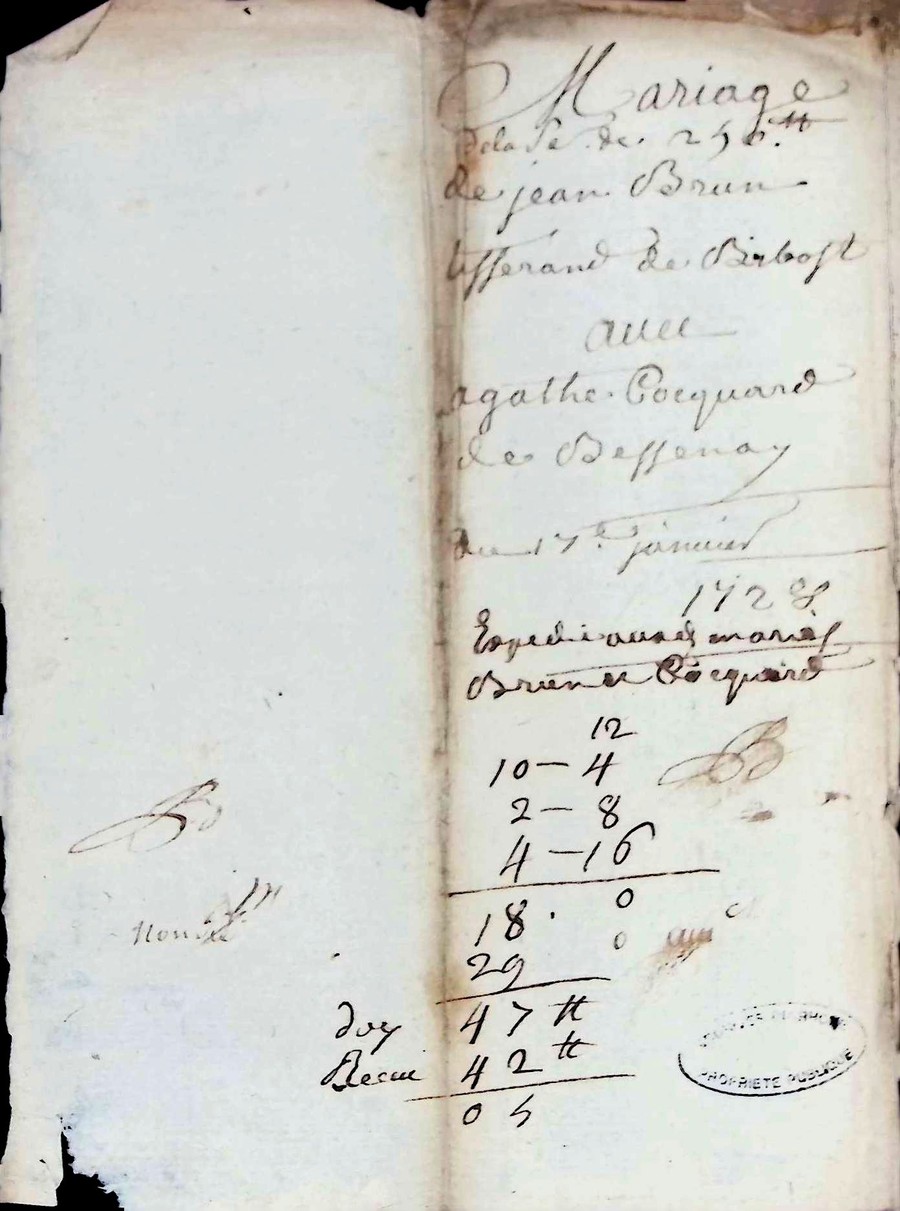 Mariage
de la Se. de 250.tt
de jean Brun
tisserand de Bibost
avec
agathe Cocquard
de Bessenay
du 17e janvier
1728
Expedié auxds mariés
Brun et Cocquard
12
10 — 4
2 — 8
4 — 16
18 . 0
29 0
doy 47 tt
Receu 42 tt
05
PROPRIETE PUBLIQUE